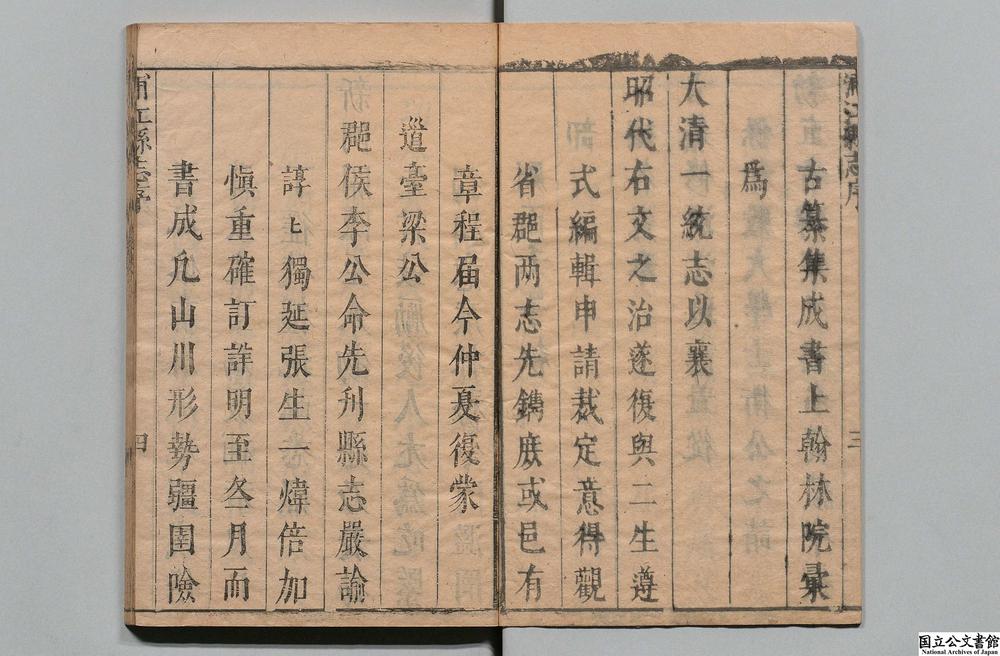 浦江縣志序
三
古纂集成書上翰林院彙
爲
大清一統志以襄
昭代右文之治遂復與二生遵
部式編輯申請裁定意得觀
省郡两志先鐫庶或邑有
章程届今仲夏復蒙
道臺梁公
新郡侯李公命先刋縣志嚴諭
諄〻獨延張生一煒倍加
慎重確訂詳明至冬月而
書成凡山川形勢疆圉險
浦江縣志序
四
国立公文書館
National Archives of Japan